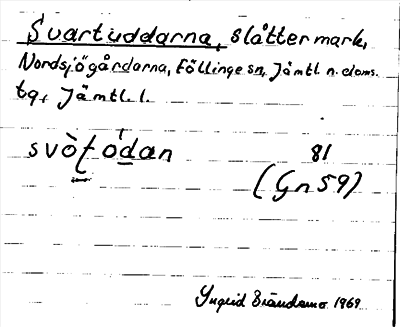 Svartuddarna, slåttermark,
Nordsjögårdarna, Föllinge sn, Jämtl. n. doms.
tg, Jämtl. l.
svòt ódan 81
(Gn 59)
Yngvid Brändemo 1969